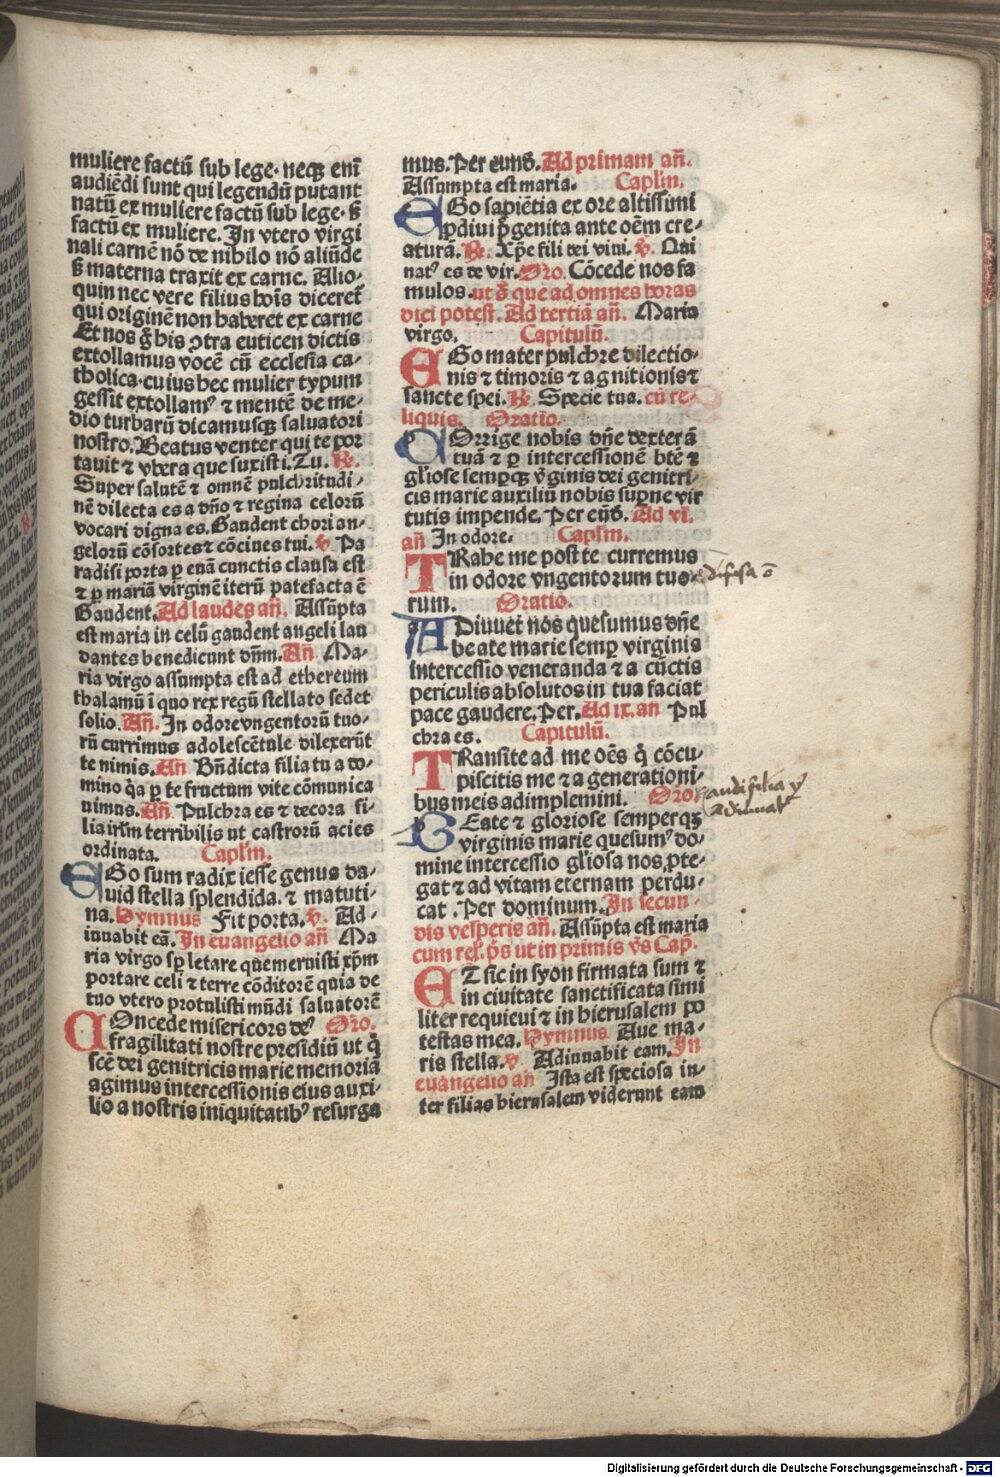 muliere factū sub lege· neqꝫ enī
audiēdi sunt qui legendū putant
natū ex muliere factū sub lege· sꝫ
factū ex muliere. In vtero virgi
nali carnē nō de nihilo nō aliūde
sꝫ materna traxit ex carne. Alio-
quin nec vere filius hoīs diceret̄
qui originē non haberet ex carne
Et nos g̊ his ꝯtra euticen dictis
extollamus vocē cū ecclesia ca-
tholica· cuius hec mulier typum
gessit extollamꝰ ⁊ mentē de me-
dio turbarū dicamusqꝫ saluatori
nostro. Beatus venter qui te por
tauit ⁊ vbera que suxisti. Tu. ℞.
Super salutē ⁊ omnē pulchritudi-
nē dilecta es a dn̄o ⁊ regina celorū
vocari digna es. Gaudent chori an-
gelorū cōsortes ⁊ cōciues tui. ℣. Pa
radisi porta ꝑ euā cunctis clausa est
⁊ ꝑ mariā virginē iterū patefacta ē
Gaudent. Ad laudes an̄. Assūpta
est maria in celū gaudent angeli lau
dantes benedicunt dn̄m. An̄ Ma-
ria virgo assumpta est ad ethereum
thalamū ī quo rex regū stellato sedet
solio. An̄. In odore vngentorū tuo-
rū currimus adolescētule dilexerūt
te nimis. An̄ Bn̄dicta filia tu a do-
mino q̄a ꝑ te fructum vite cōmunica
uimus. An̄. Pulchra es ⁊ decora fi-
lia irlm̄ terribilis ut castrorū acies
ordinata. Caplm̄.
EGo sum radix iesse genus da-
uid stella splendida. ⁊ matuti-
na. Hymnus Fit porta. ℣. Ad-
iuuabit eā. In euangelio an̄ Ma
ria virgo sꝑ letare que meruisti xp̄m
portare celi ⁊ terre cōditorē quia de
tuo vtero protulisti mūdi saluatorē
COncede misericors deꝰ Oro.
fragilitati nostre presidiū ut q̄
scē dei genitricis marie memoriā
agimus intercessionis eius auxi-
lio a nostris iniquitatibꝰ resurga
mus. Per eund̄. Ad primam an̄.
Assumpta est maria. Caplm̄.
EGo sapiētia ex ore altissimi
ꝓdiui p̄genita ante oēm cre-
aturā. ℞. Xp̄e fili dei viui. ℣. Qui
natꝰ es de vir. Oro. Cōcede nos fa
mulos. ut s̄ que ad omnes horas
dici potest. Ad tertiā an̄. Maria
virgo. Capitulū.
EGo mater pulchre dilectio-
nis ⁊ timoris ⁊ agnitionis ⁊
sancte spei. ℞. Specie tua. cū re-
liquis. Oratio.
COrrige nobis dn̄e dexterā
tuā ⁊ ꝑ intercessionē btē ⁊
gl̄iose semꝑqꝫ v̄ginis dei genitri-
cis marie auxiliū nobis suꝑne vir
tutis impende. Per eūd̄. Ad vi.
an̄ In odore. Caplm̄.
TRahe me post te curremus
in odore vngentorum tuo-
rum. Oratio.
ADiuuet nos quesumus dn̄e
beate marie semꝑ virginis
intercessio veneranda ⁊ a cūctis
periculis absolutos in tua faciat
pace gaudere. Per. Ad ix. an Pul
chra es. Capitulū.
TRansite ad me oēs q̄ cōcu-
piscitis me ⁊ a generationi-
bus meis adimplemini. Oro.
audi filia
Adiuuat
BEate ⁊ gloriose semperqꝫ
virginis marie quesumꝰ do-
mine intercessio gl̄iosa nos ꝓte-
gat ⁊ ad vitam eternam perdu-
cat. Per dominum. In secun-
dis vesperis an̄. Assūpta est maria
cum rel̄. p̄s ut in primis v̄s Cap̄.
ET sic in syon firmata sum ⁊
in ciuitate sanctificata simi
liter requieui ⁊ in hierusalem po
testas mea. Hymnus Aue ma-
ris stella. ℣ Adiuuabit eam. In
euangelio an̄ Ista est speciosa in-
ter filias hierusalem viderunt eam
Digitalisierung gefördert durch die Deutsche Forschungsgemeinschaft - DFG